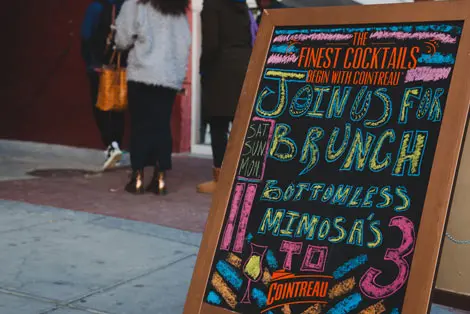 THE
FINEST COCKTAILS
BEGIN WITH COINTREAU
JOIN US FOR
SAT
SUN
MON
BRUNCH
BOTTOMLESS
MIMOSA'S
11 TO 3
COINTREAU